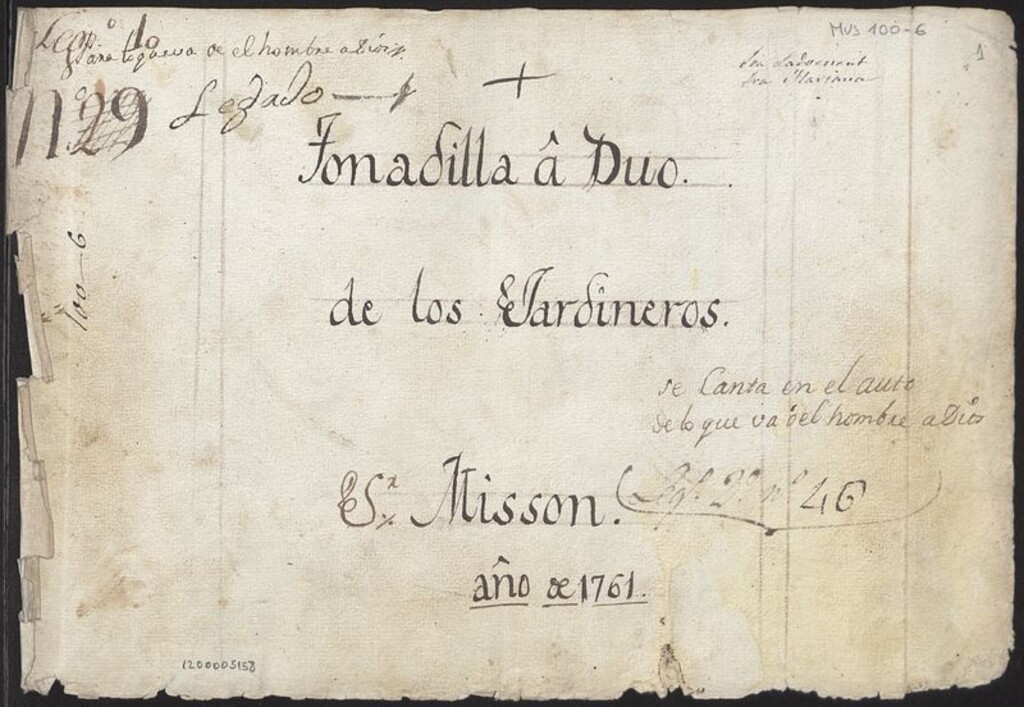 MUS 100-6
1
Leg.º 1º
Para lo que va de el hombre a Dios
Sra Ladvenant
Sra Mariana
n. 29
Legado 1
+
Tonadilla â Duo.
de los Jardineros.
100-6
se Canta en el auto
de lo que va del hombre a Dios
Sr. Misson.
Leg.º 2.º nº 46
año de 1761.
1200005158